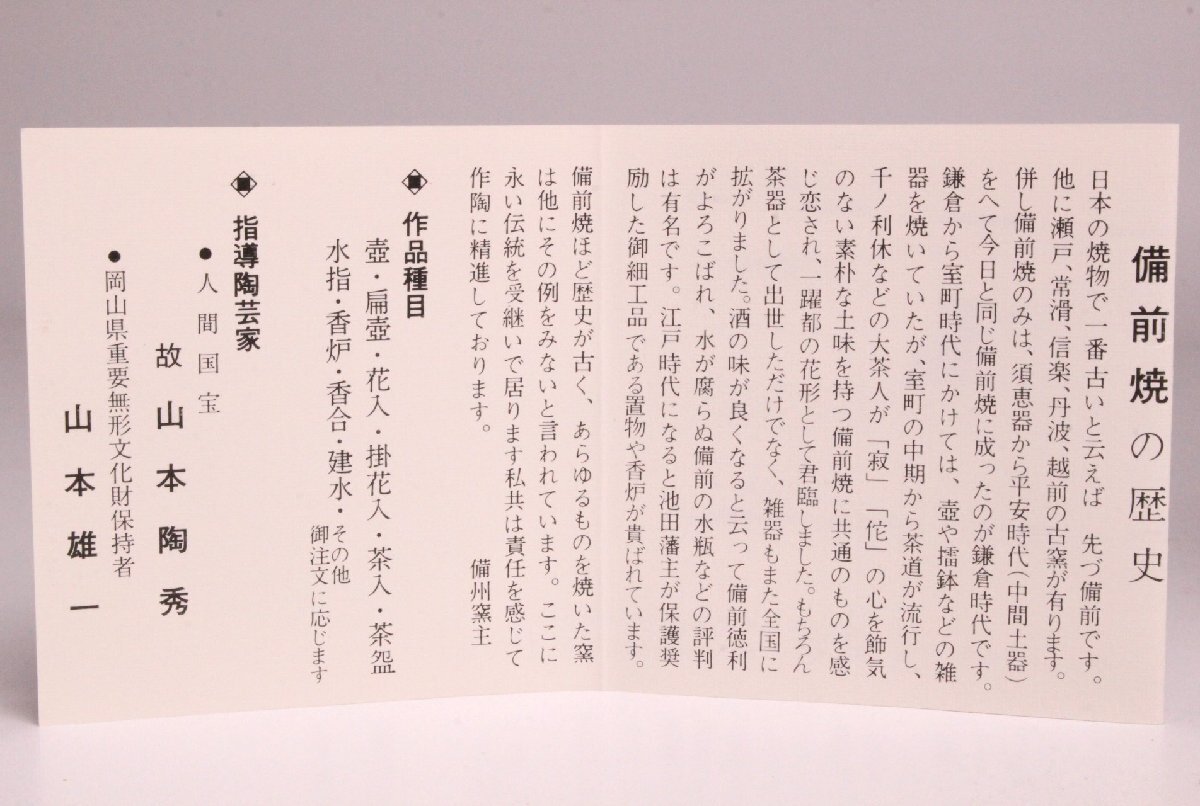 備前焼の歴史
日本の焼物で一番古いと云えば　先づ備前です。
他に瀬戸、常滑、信楽、丹波、越前の古窯が有ります。
併し備前焼のみは、須恵器から平安時代（中間土器）
をへて今日と同じ備前焼に成ったのが鎌倉時代です。
鎌倉から室町時代にかけては、壺や擂鉢などの雑
器を焼いていたが、室町の中期から茶道が流行し、
千ノ利休などの大茶人が「寂」「侘」の心を飾気
のない素朴な土味を持つ備前焼に共通のものを感
じ恋され、一躍都の花形として君臨しました。もちろん
茶器として出世しただけでなく、雑器もまた全国に
拡がりました。酒の味が良くなると云って備前徳利
がよろこばれ、水が腐らぬ備前の水瓶などの評判
は有名です。江戸時代になると池田藩主が保護奨
励した御細工品である置物や香炉が貴ばれています。
備前焼ほど歴史が古く、あらゆるものを焼いた窯
は他にその例をみないと言われています。ここに
永い伝統を受継いで居ります私共は責任を感じて
作陶に精進しております。　備州窯主
作品種目
壺・扁壺・花入・掛花入・茶入・茶盌
水指・香炉・香合・建水・その他
御注文に応じます
指導陶芸家
●人間国宝
故　山本陶秀
●岡山県重要無形文化財保持者
山本雄一